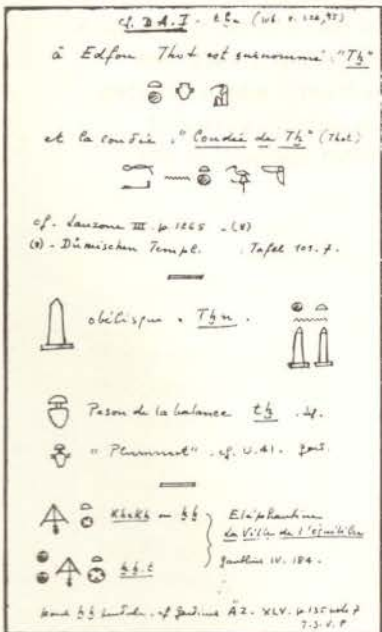 cf. D.A.I.
à Edfou Thot est surnommé "Tḫ"
et la coudée, "Coudée de Tḫ" (Thot)
cf. Lanzone III. p. 1265 - (8)
(8) - Dümischen Templ. Tafel 101. 7.
obélisque = Tḫn.
Peson de la balance tḫ.
"Plummet". cf. U.41. Gard.
Khekh ou ḫḫ
Eléphantine
La Ville de l'équilibre
ḫḫ.t
Gauthier IV. 184.
pour ḫḫ cf. Gardiner ÄZ. XLV. p. 135 note 7